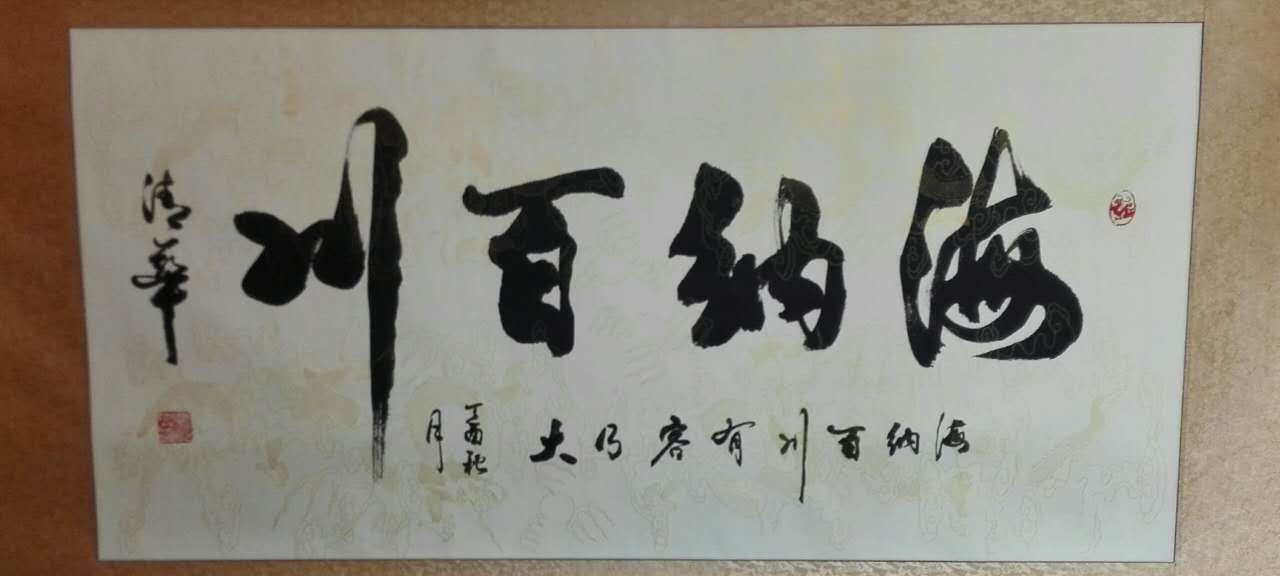 海纳百川
海纳百川有容乃大
丁酉秋
月
清華